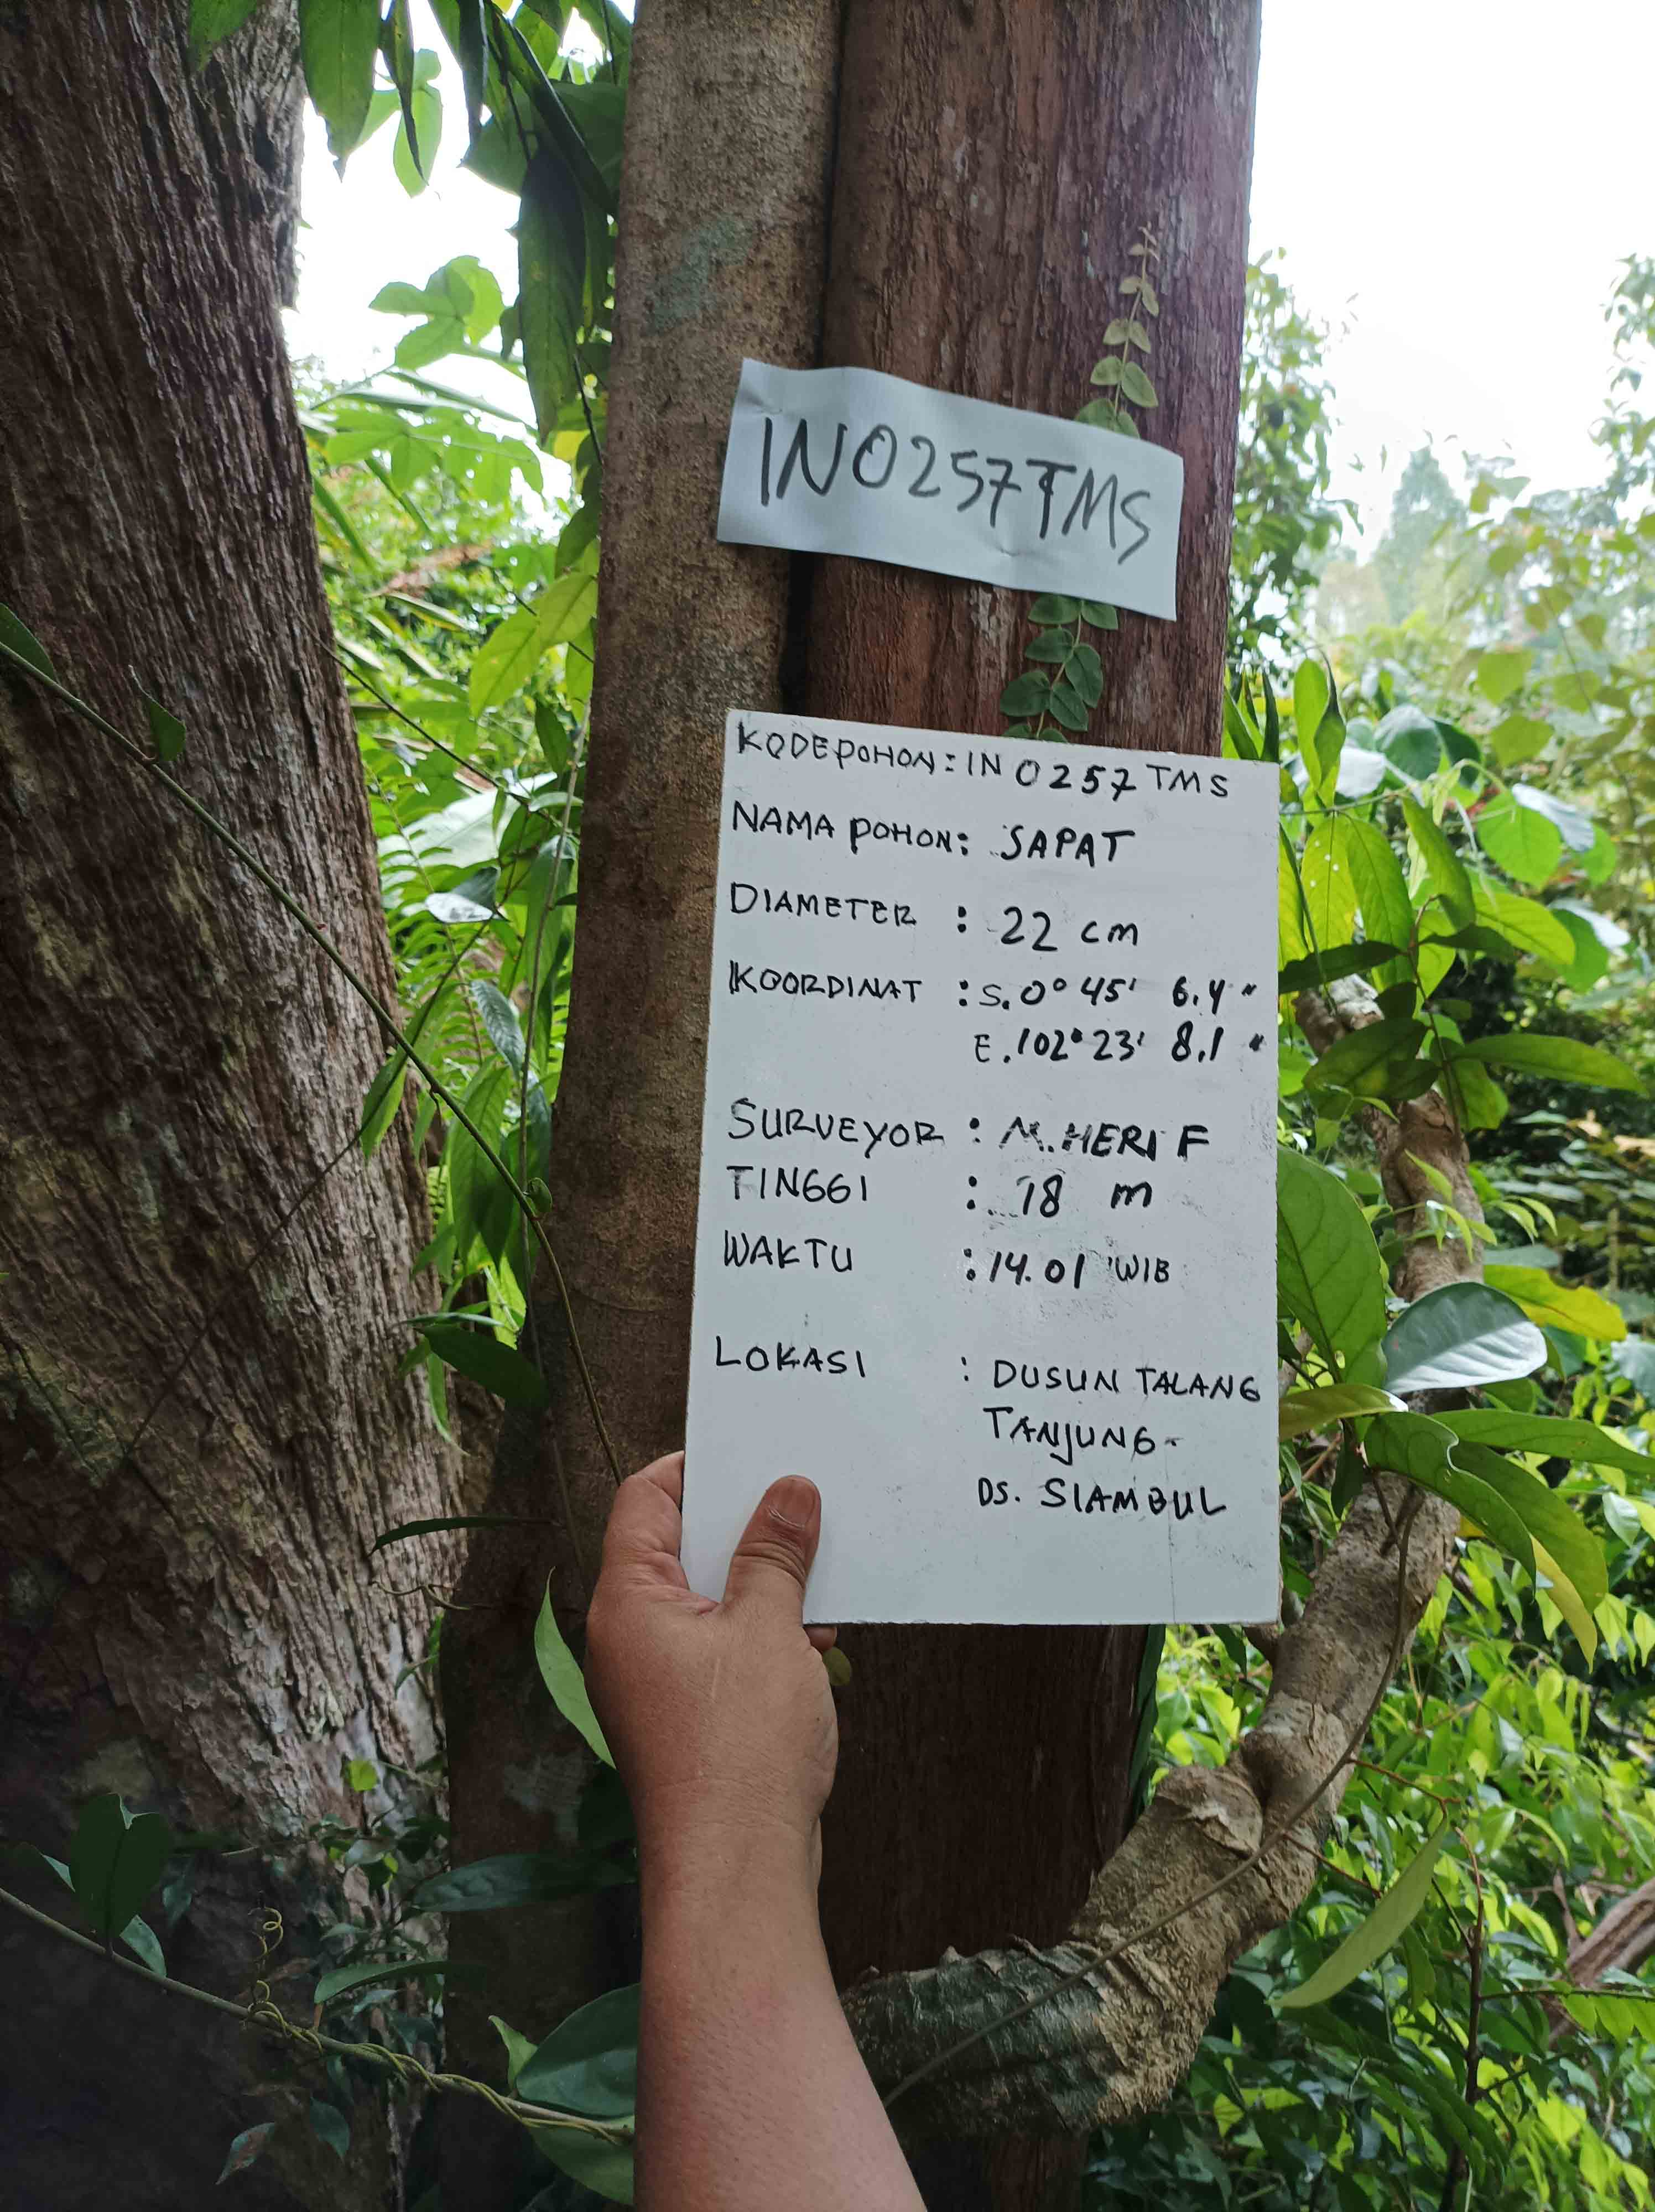 IN0257TMS
KODE POHON : IN 0257 TMS
NAMA POHON : SAPAT
DIAMETER : 22 cm
KOORDINAT : S. 0° 45' 6.4"
E. 102° 23' 8.1"
SURVEYOR : M. HERI F
TINGGI : 18 m
WAKTU : 14.01 WIB
LOKASI : DUSUN TALANG
TANJUNG-
DS. SIAMBUL